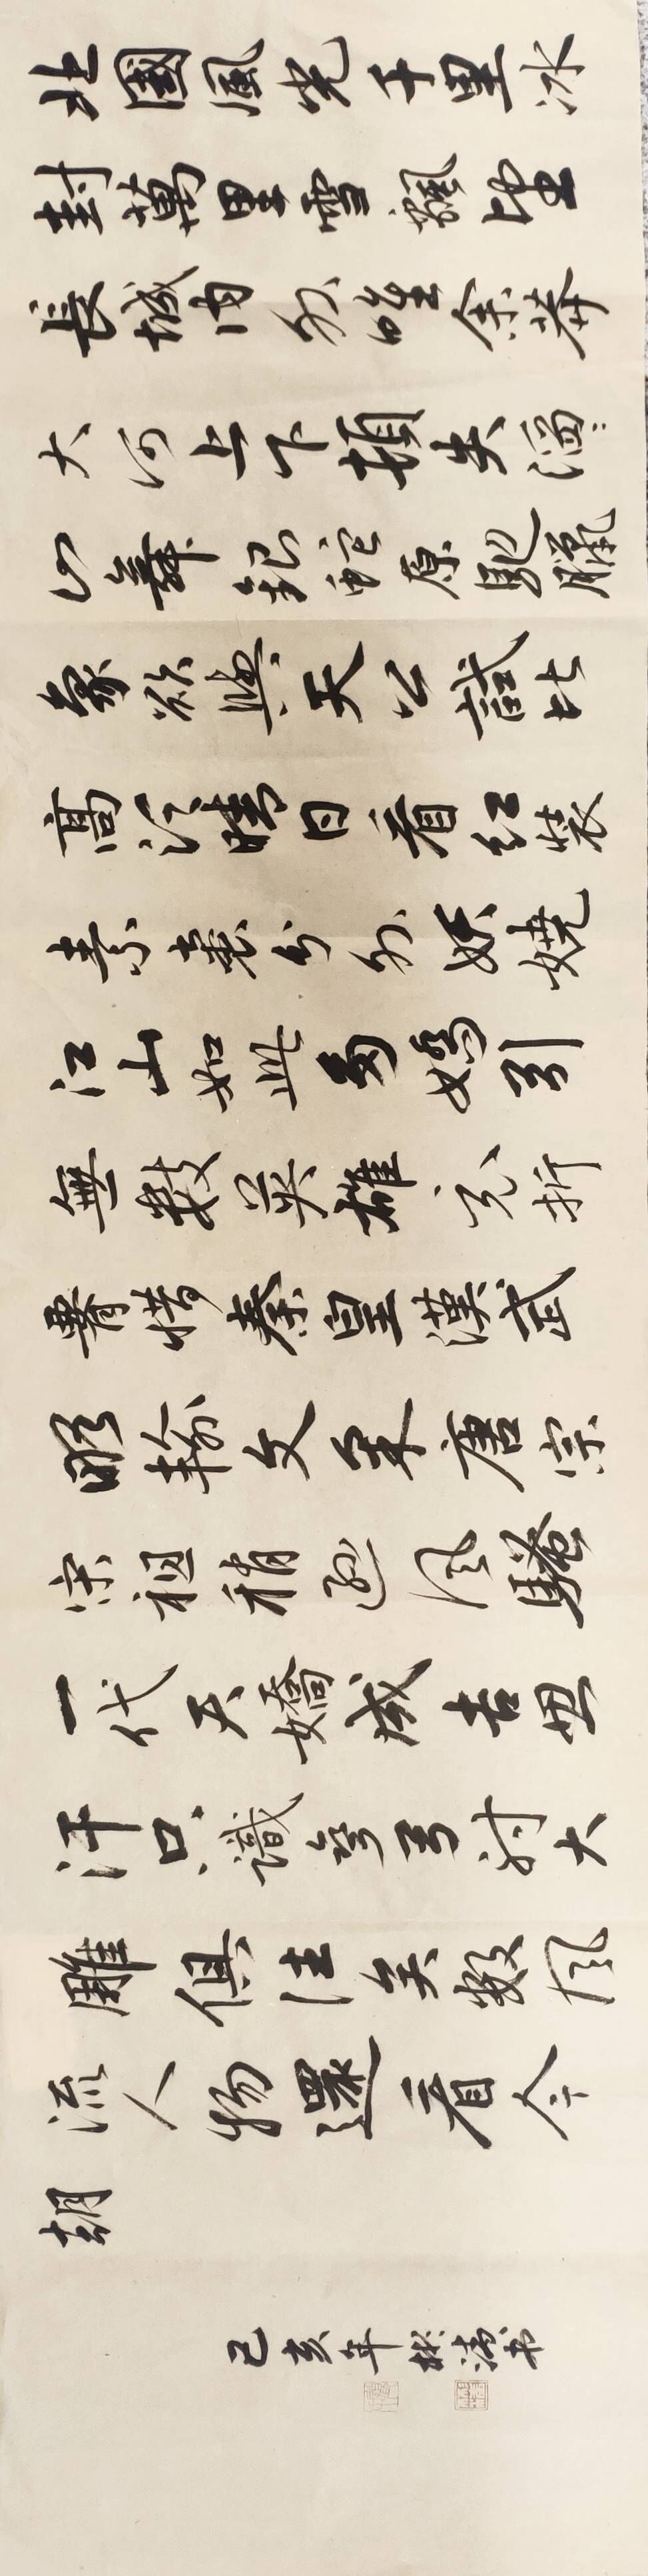 北國風光千里冰
封萬里雪飄望
長城内外唯余莽
大河上下頓失滔〻
山舞銀蛇原馳臘
象欲與天公試比
高須晴日看紅裝
素裹分外妖嬈
江山如此多嬌引
無數英雄竞折
腰惜秦皇漢武
略輸文采唐宗
宋祖稍遜風騷
一代天嬌成吉思
汗只識彎弓射大
雕俱往矣數風
流人物還看今
朝
己亥年彬濤书